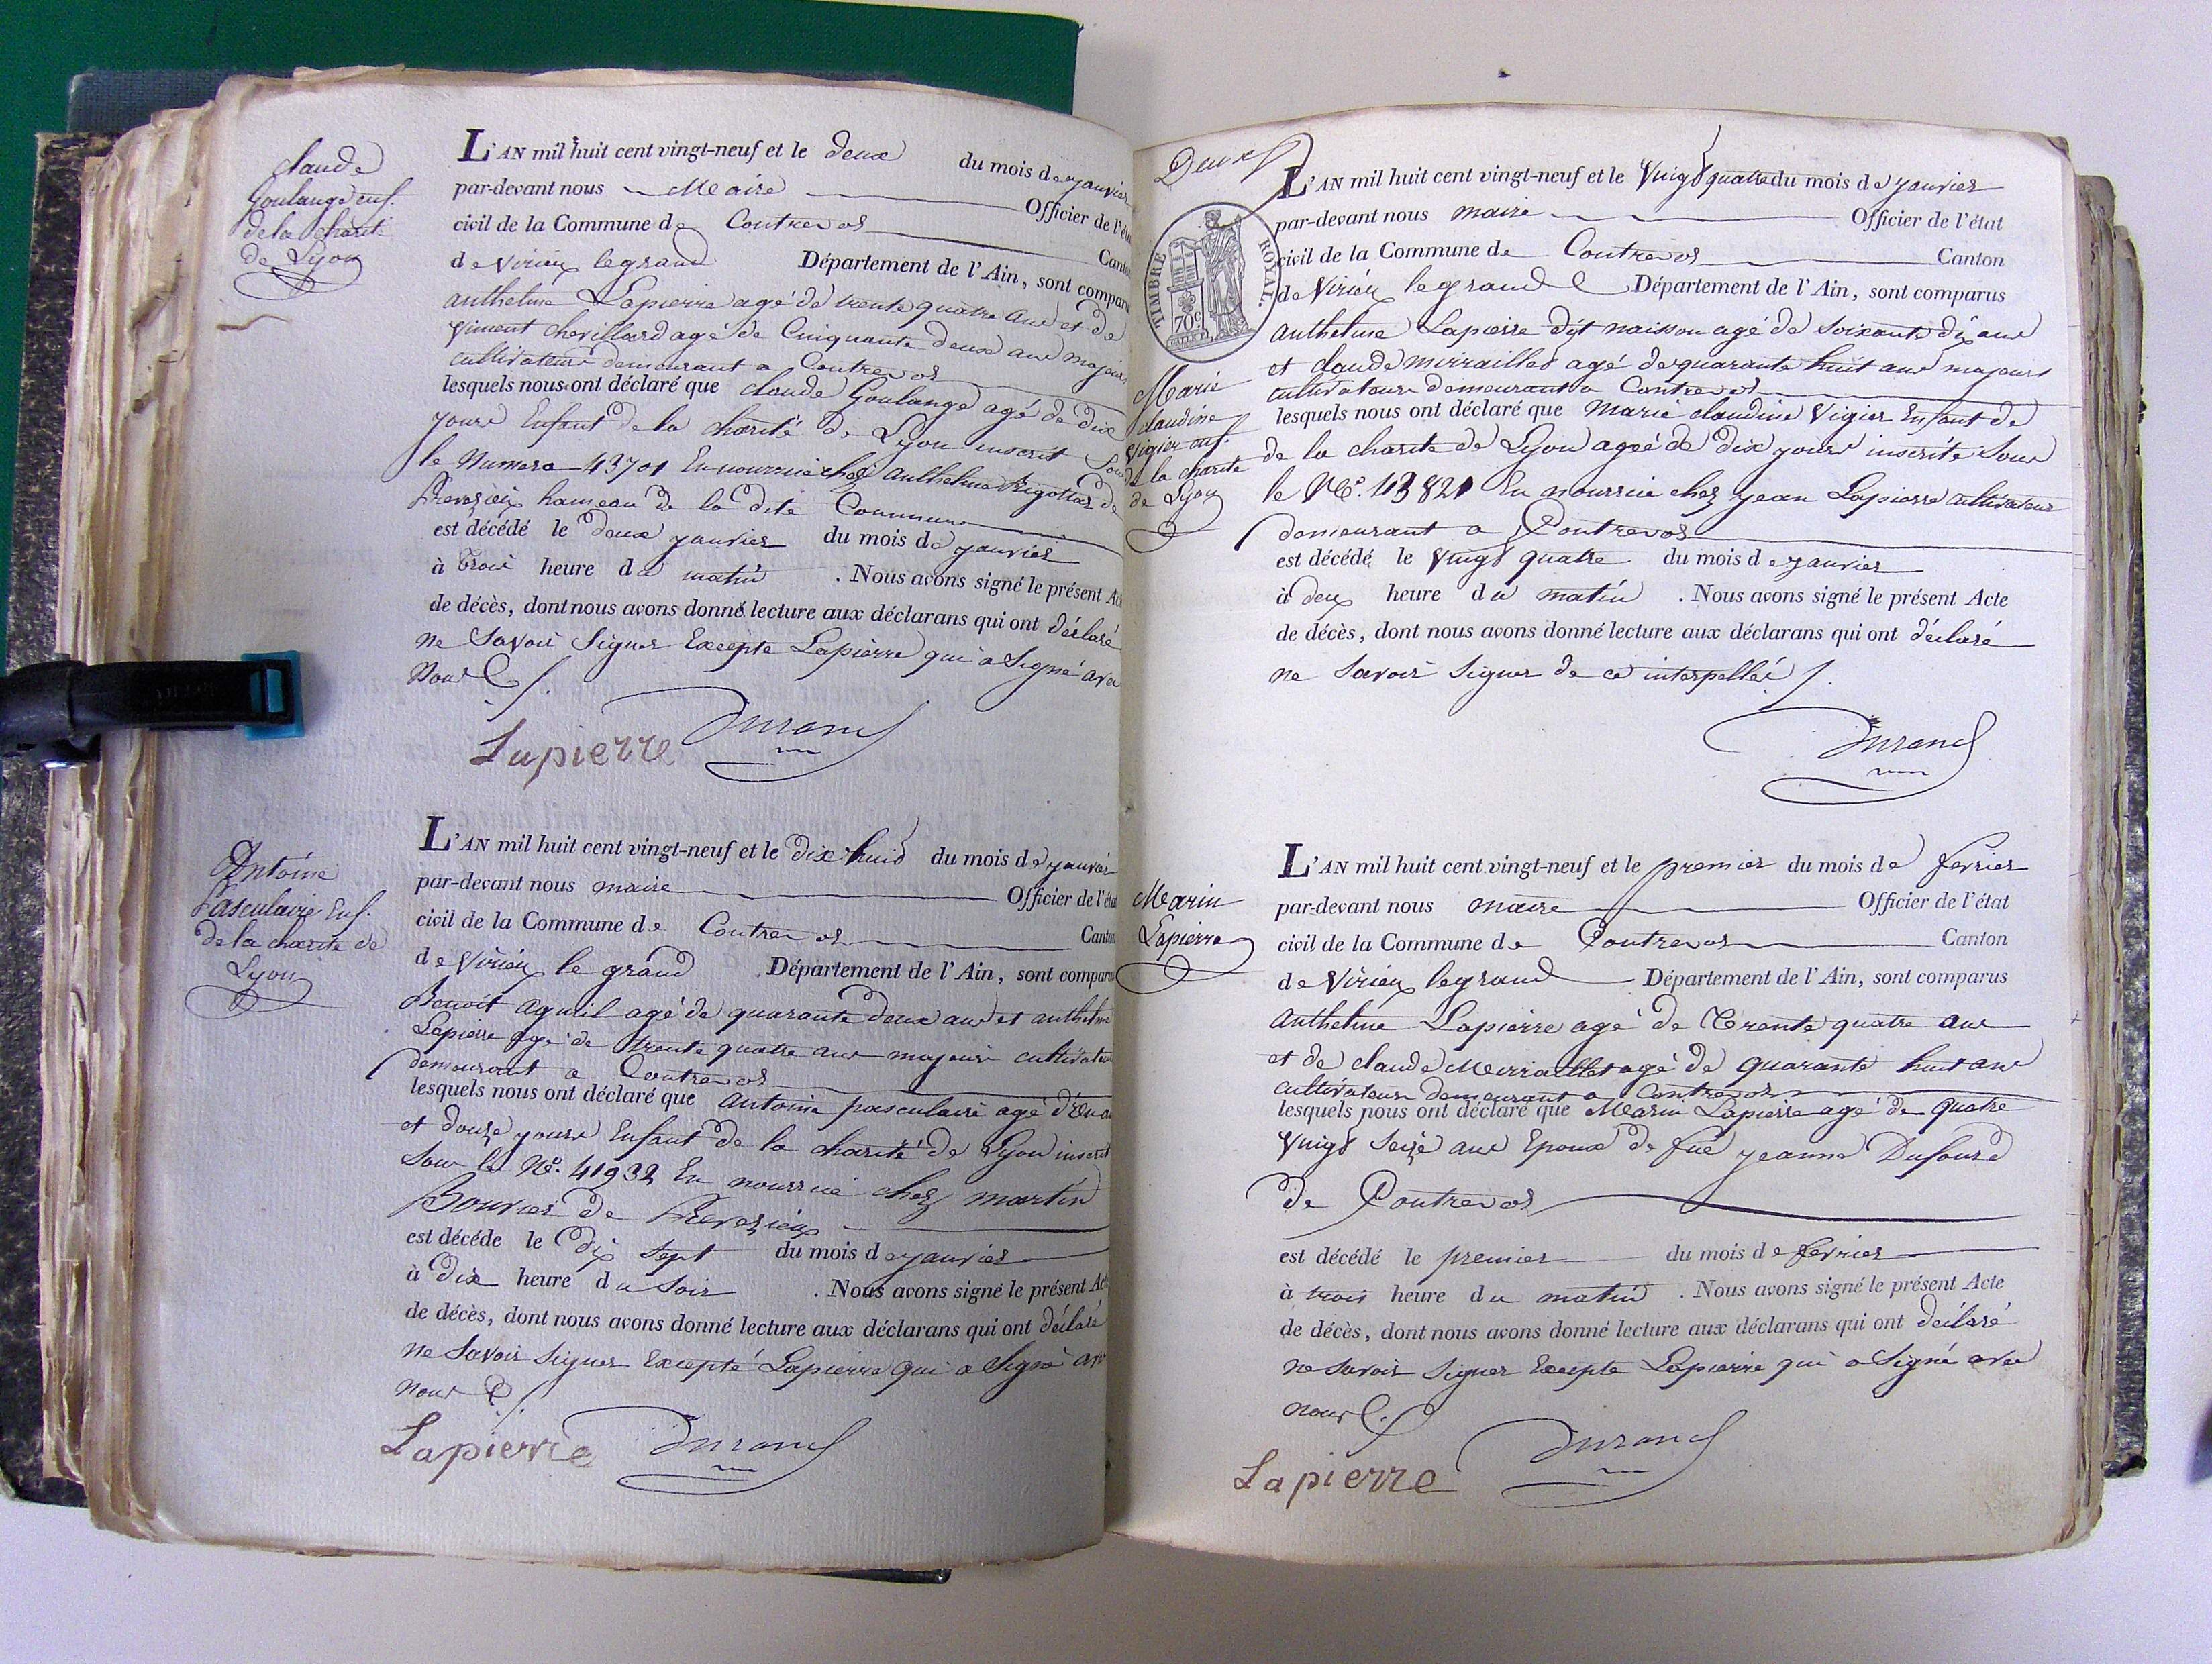 claude
Goulange enf.
de la charit
de Lyon
L'AN mil huit cent vingt-neuf et le deux du mois de janvier
par-devant nous Maire Officier de l'éta
civil de la Commune de Contrevos Canton
de Virieu legrand Département de l'Ain, sont comparu
anthelme Lapierre agé de trente quatre ans et de
Viment chevillard agé de Cinquante deux ans majeurs
cultivateurs demeurant a Contrevos
lesquels nous ont déclaré que claude Goulange agé de dix
jours Enfant de la charité de Lyon inscrit Sous
le Numero 43701 En nourrice chez anthelme Rigottas de
hameau de la dite Commune
est décédé le deux janvier du mois de janvier
à trois heure du matin . Nous avons signé le présent Ac
de décès, dont nous avons donné lecture aux déclarans qui ont déclaré
ne Savoir Signer Excepte Lapierre qui a Signé avec
nous
Lapierre Durand
Antoine
Pasculaire Enf.
de la charite de
Lyon
L'AN mil huit cent vingt-neuf et le dix huit du mois de janvier
par-devant nous maire Officier de l'éta
civil de la Commune de Contrevos Canton
de Virieu le grand Département de l'Ain, sont comparu
Benoit aguil agé de quarante deux ans et anthelme
Lapierre agé de trente quatre ans majeurs cultivateu
demeurant a Contrevos
lesquels nous ont déclaré que antoine pasculaire agé d'un a
et douze jours Enfant de la charité de Lyon inscrit
Sous le No. 41932 En nourrice chez martin
Bouvier de
est décéde le dix sept du mois de janvier
à dix heure du Soir . Nous avons signé le présent Ac
de décès, dont nous avons donné lecture aux déclarans qui ont déclaré
ne Savoir Signer Excepté Lapierre qui a Signé av
nous
Lapierre Durand
Deux
TIMBRE ROYAL.
70c
L'AN mil huit cent vingt-neuf et le Vingt quatre du mois de janvier
par-devant nous maire Officier de l'état
civil de la Commune de Contrevos Canton
de Virieu legrand Département de l'Ain, sont comparus
anthelme Lapierre dit naisson agé de Soixante dix ans
et claude mirrailles agé de quarante huit ans majeurs
cultivateurs demeurant a Contrevos
Marie
claudine
Vigier enf.
d la charité
de Lyon
lesquels nous ont déclaré que marie claudine Vigier Enfant de
de la charite de Lyon ageé de dix jours inscrite Sous
le No. 43821 En nourrice chez jean Lapierre cultivateur
demeurant a Contrevos
est décédé le Vingt quatre du mois de janvier
à deux heure du matin . Nous avons signé le présent Acte
de décès, dont nous avons donné lecture aux déclarans qui ont déclaré
ne Savoir Signer de ce interpellés
Durand
Marin
Lapierre
L'AN mil huit cent vingt-neuf et le premier du mois de fevrier
par-devant nous maire Officier de l'état
civil de la Commune de Contrevos Canton
de Virieu legrand Département de l'Ain, sont comparus
anthelme Lapierre agé de Trente quatre ans
et de claude Mirraillet agé de quarante huit ans
cultivateurs demeurant a Contrevos
lesquels nous ont déclaré que Marin Lapierre agé de quatre
Vingt Seize ans Epoux de fue jeanne Dufour
de Contrevos
est décédé le premier du mois de fevrier
à trois heure du matin . Nous avons signé le présent Acte
de décès, dont nous avons donné lecture aux déclarans qui ont déclaré
ne Savoir Signer Excepte Lapierre qui a Signé avec
nous
Lapierre Durand